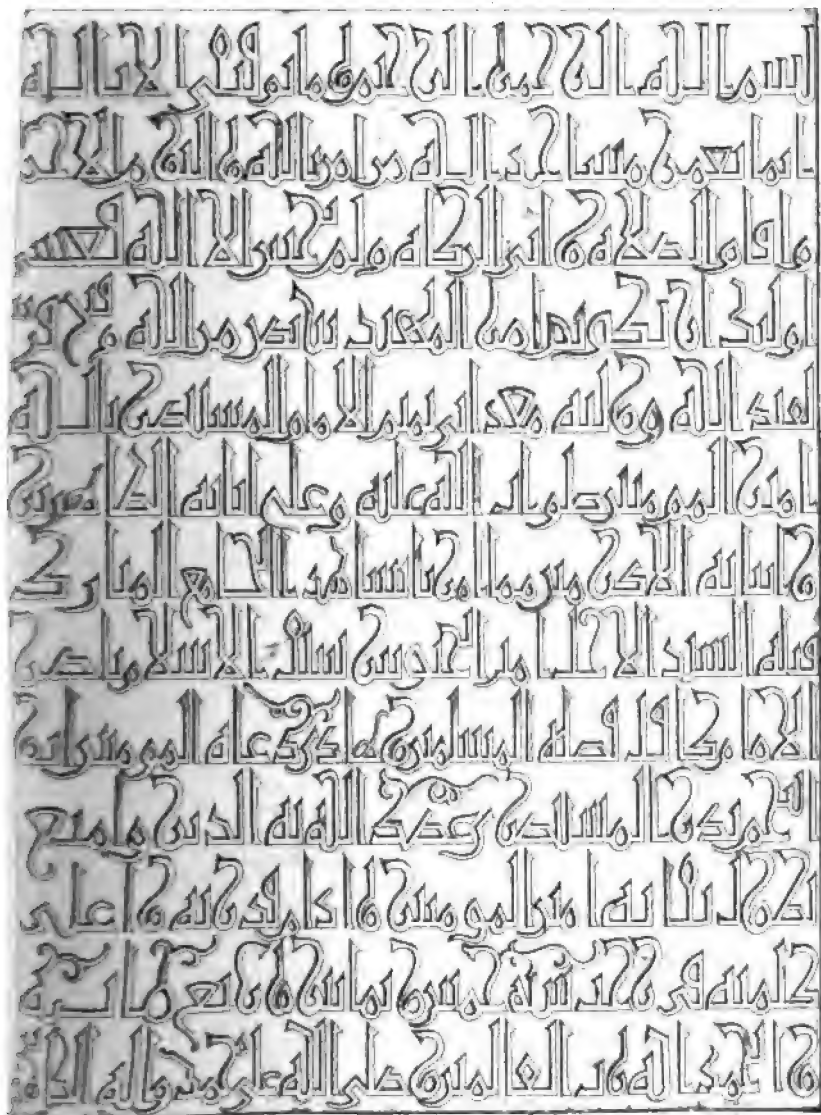 بسم الله الرحمن الرحيم وما توفيقي الا بالله
انما يعمر مساجد الله من امن بالله واليوم الاخر
واقام الصلاة واتى الزكاة ولم يخش الا الله فعسى
اولئك ان يكونوا من المهتدين نصر من الله وفتح قريب
لعبد الله ووليه معد ابي تميم الامام المستنصر بالله
امير المومنين صلوات الله عليه وعلى ابائه الطاهرين
وابنائه الاكرمين مما امر بانشاء هذا الجامع المبارك
فتاه السيد الاجل امير الجيوش سيف الاسلام ناصر
الامام كافل قضاة المسلمين وهادي دعاة المومنين ابو
النجم بدر المستنصري عضد الله به الدين وامتع
بطول بقائه امير المومنين وادام قدرته واعلى
كلمته في سنة خمس وثمانين واربع مائة
والحمد لله رب العالمين صلى الله على محمد واله